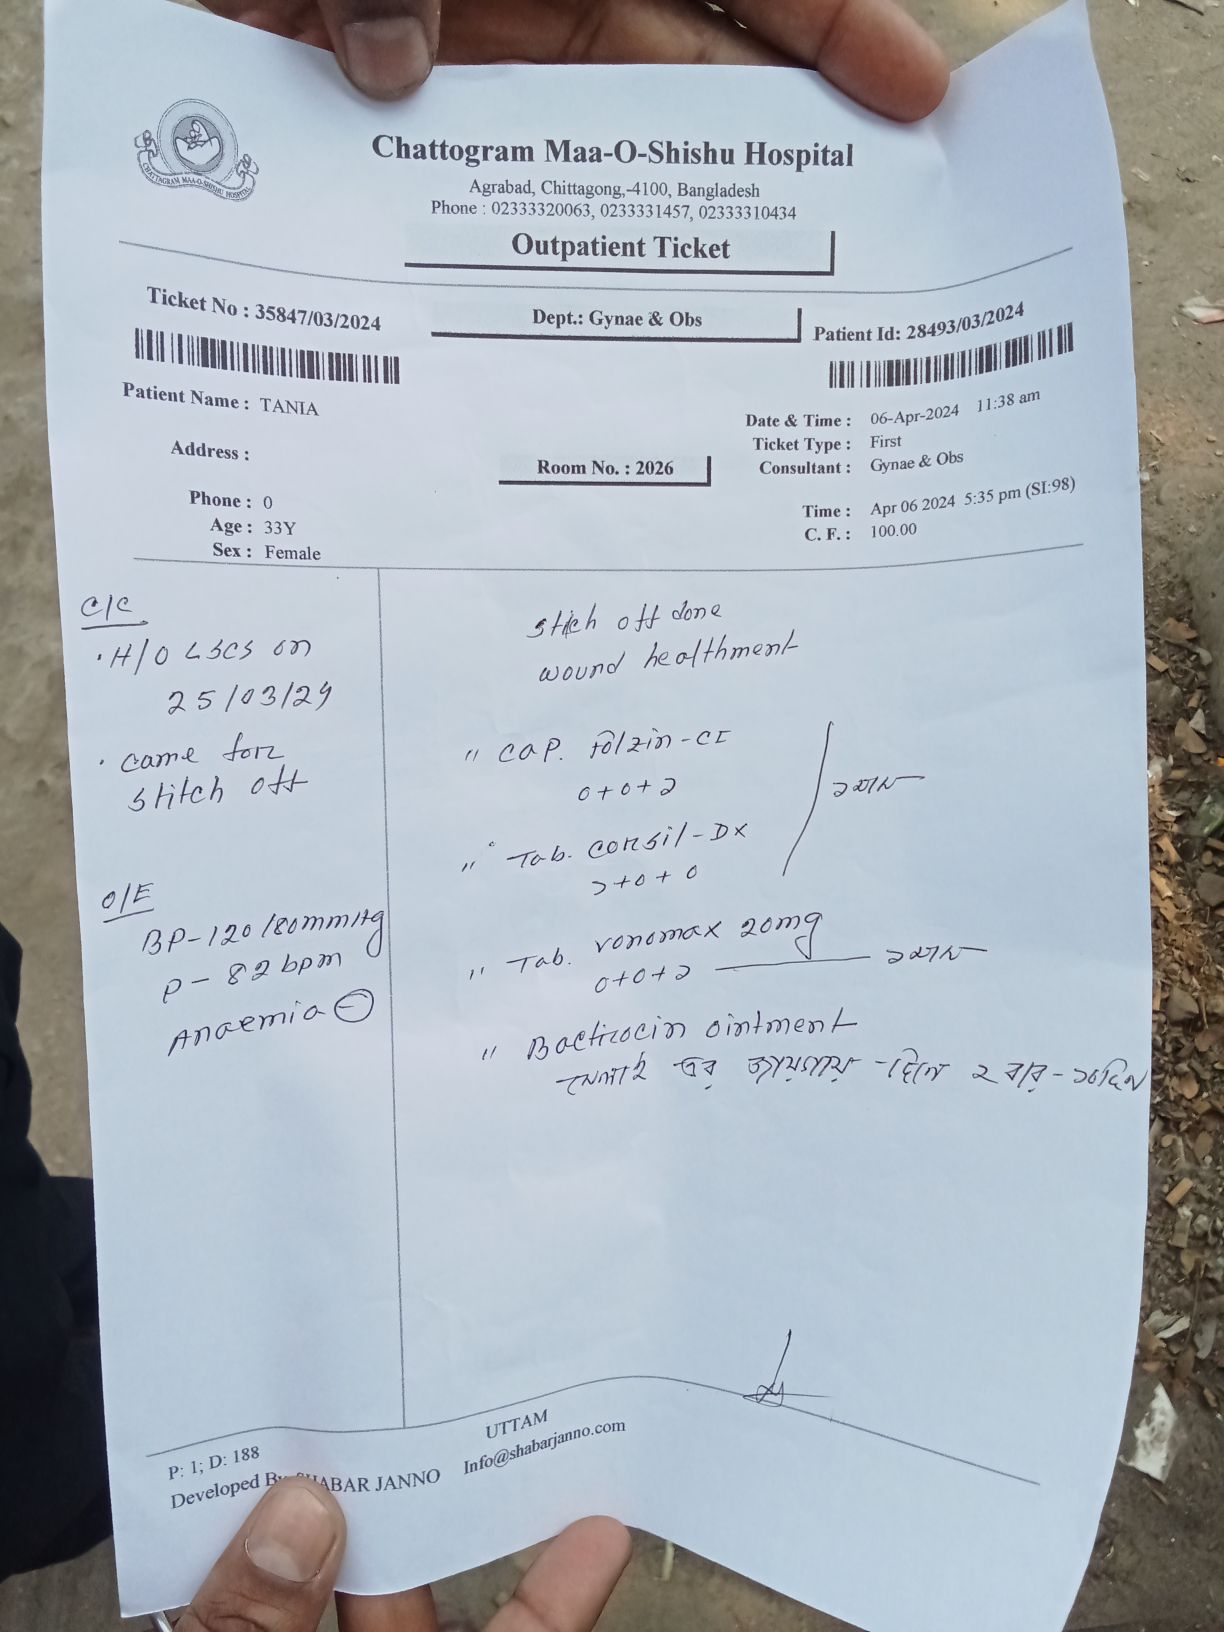 CHATTAGRAM MAA-O-SHISHU HOSPITAL
Chattogram Maa-O-Shishu Hospital
Agrabad, Chittagong,-4100, Bangladesh
Phone : 02333320063, 0233331457, 02333310434
Outpatient Ticket
Ticket No : 35847/03/2024
Dept.: Gynae & Obs
Patient Id: 28493/03/2024
Patient Name : TANIA
Address :
Phone : 0
Age : 33Y
Sex : Female
Room No. : 2026
Date & Time : 06-Apr-2024 11:38 am
Ticket Type : First
Consultant : Gynae & Obs
Time : Apr 06 2024 5:35 pm (SI:98)
C. F. : 100.00
C/C
· H/O LSCS on
25/03/24
· came for
stitch off
O/E
BP-120/80mmHg
P- 82 bpm
Anaemia ⊖
stich off done
wound healthment
" Cap. Folzin-CI
0+0+১
" Tab. Corsil-DX
১+0+0
১মাস
" Tab. Vonomax 20mg
0+0+১ — ১মাস
" Bactrocin ointment
সেলাই এর জায়গায় -দিনে ২ বার- ১০দিন
P: 1; D: 188
UTTAM
Developed By SHABAR JANNO Info@shabarjanno.com